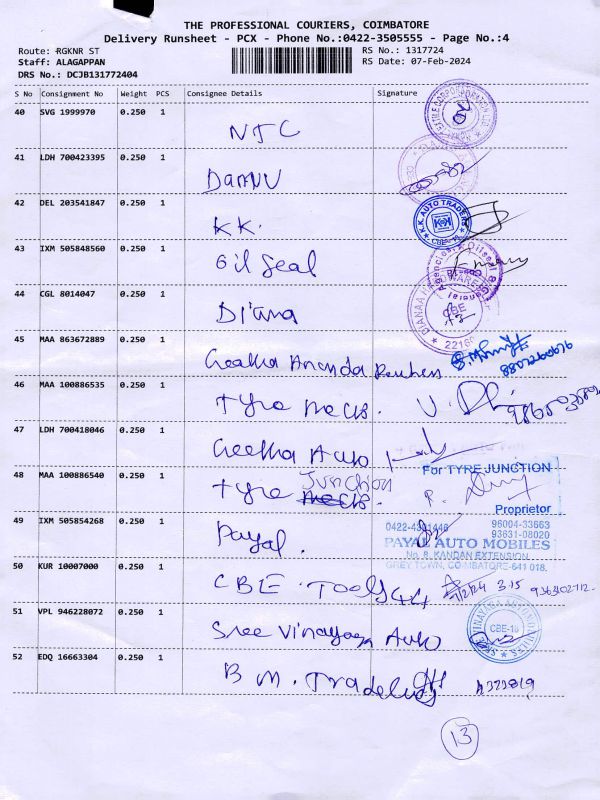 THE PROFESSIONAL COURIERS, COIMBATORE
Delivery Runsheet - PCX - Phone No.:0422-3505555 - Page No.:4
Route: RGKNR ST
RS No.: 1317724
Staff: ALAGAPPAN
RS Date: 07-Feb-2024
DRS No.: DCJB131772404
S No Consignment No Weight PCS Consignee Details Signature
40 SVG 1999970 0.250 1
NTC
41 LDH 700423395 0.250 1
42 DEL 203541847 0.250 1
K.K. AUTO TRADERS
KK.
CBE-18
43 IXM 505848560 0.250 1
Oil Seal
44 CGL 8014047 0.250 1
Diana
CBE
45 MAA 863672889 0.250 1
Geetha Ananda
46 MAA 100886535 0.250 1
Tyre Mecs.
47 LDH 700418046 0.250 1
Geetha Auto
For TYRE JUNCTION
48 MAA 100886540 0.250 1
Tyre Junction
Proprietor
49 IXM 505854268 0.250 1
96004-33663
93631-08020
Payal.
PAYAL AUTO MOBILES
No. 8, KANDAN EXTENSION,
GREY TOWN, COIMBATORE-641 018.
50 KUR 10007000 0.250 1
CBE. Tools
7/2/24 3.15
51 VPL 946228072 0.250 1
Sree Vinayaga Auto
CBE-18
52 EDQ 16663304 0.250 1
B M.
13